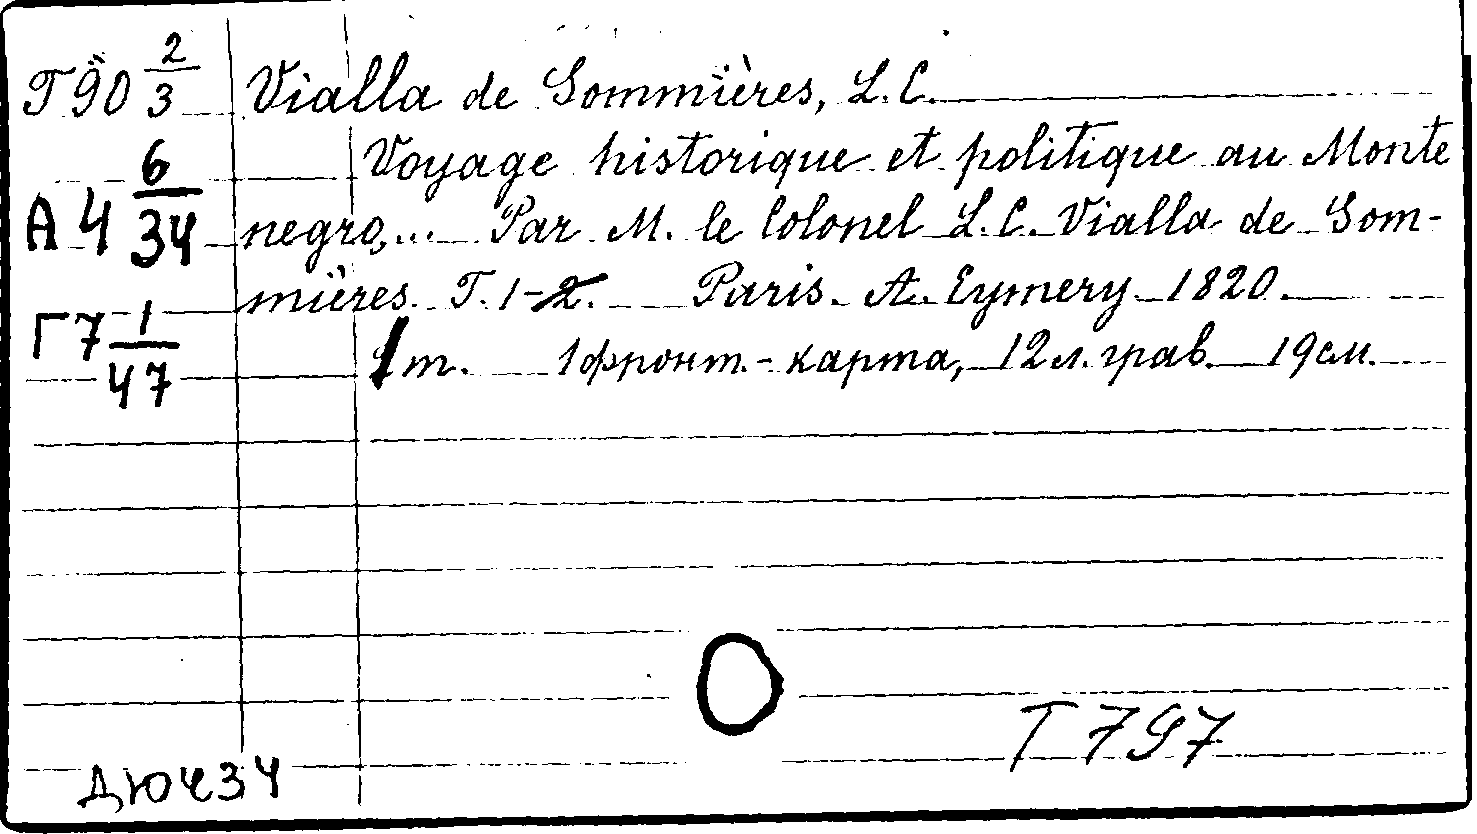 Т90 2/3 Vialla de Sommières, L. C.
А4 6/34 Voyage historique et politique au Monte
negro,... Par M. le Colonel L. C. Vialla de Som-
mières. T. 1-2. Paris. A. Eymery 1820.
Г7 1/47 1 т. 1 фронт.-карта, 12 л. грав. 19 см.
Т 797
ДЮ434